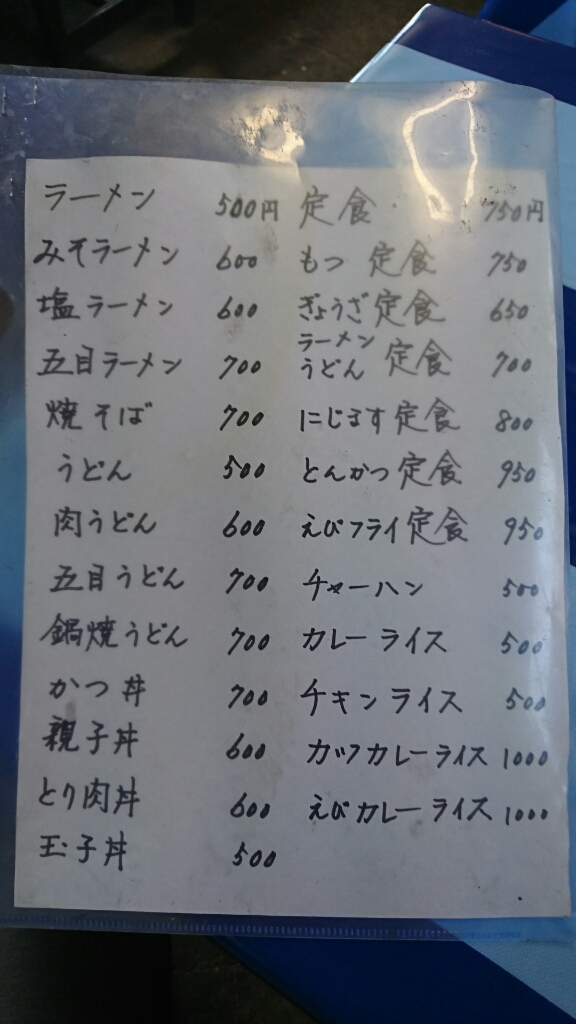 ラーメン 500円
みそラーメン 600
塩ラーメン 600
五目ラーメン 700
焼そば 700
うどん 500
肉うどん 600
五目うどん 700
鍋焼うどん 700
かつ丼 700
親子丼 600
とり肉丼 600
玉子丼 500
定食 750円
もつ定食 750
ぎょうざ定食 650
ラーメン
うどん 定食 700
にじます定食 800
とんかつ定食 950
えびフライ定食 950
チャーハン 500
カレーライス 500
チキンライス 500
カツカレーライス 1000
えびカレーライス 1000